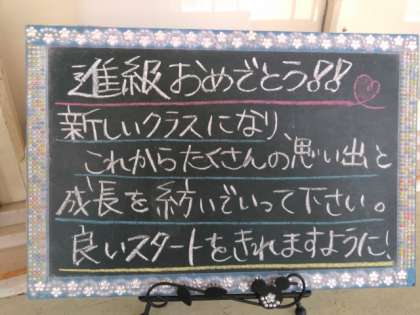 進級おめでとう!!
新しいクラスになり、
これからたくさんの思い出と
成長を紡いでいって下さい。
良いスタートをきれますように!